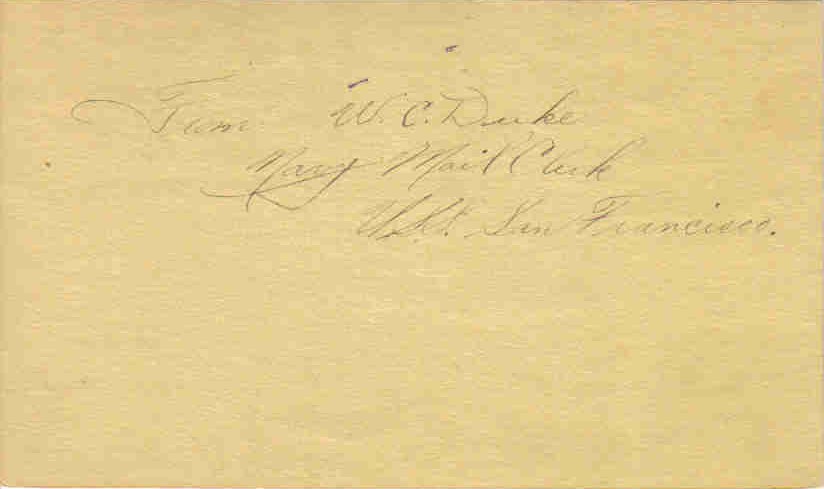 From W. C. Duke
Navy Mail Clerk
U.S.S. San Francisco.